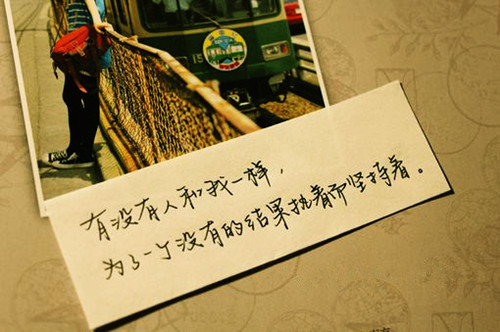 有没有人和我一样，
为了一个没有的结果执着而坚持着。
15